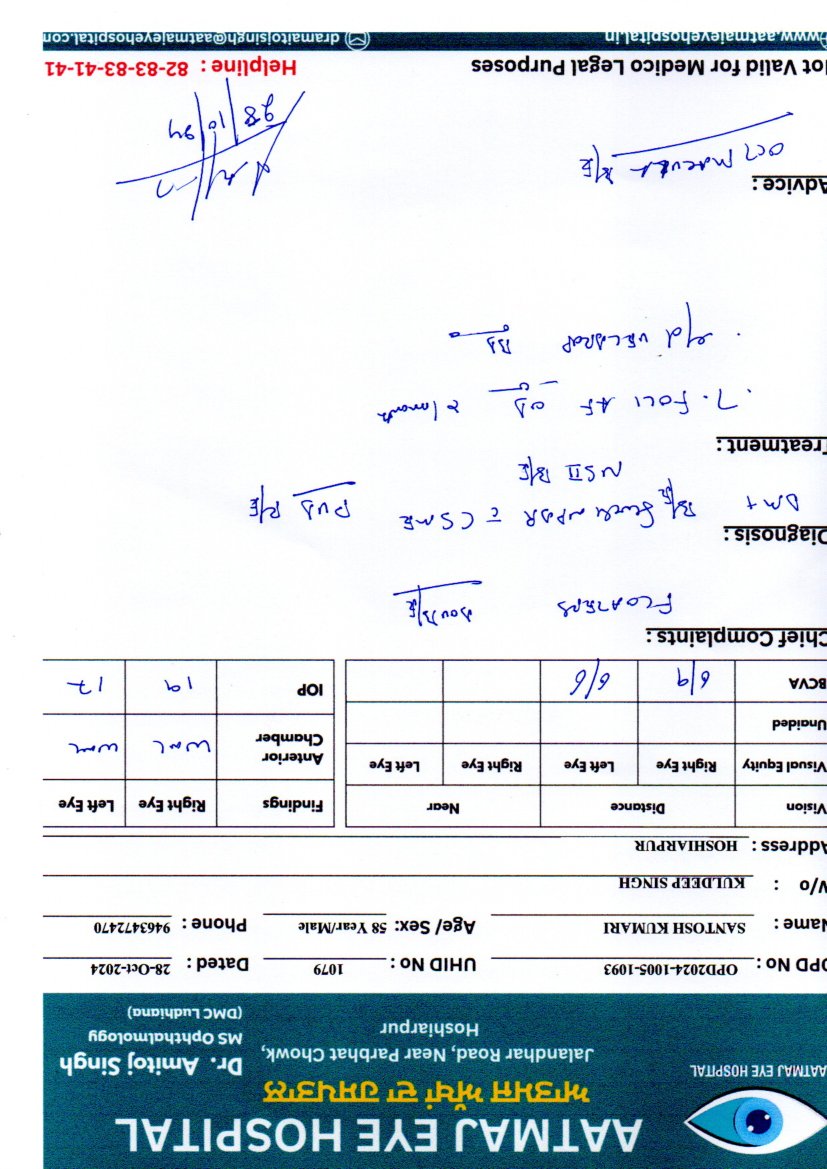 AATMAJ EYE HOSPITAL
ਆਤਮਜ ਅੱਖਾਂ ਦਾ ਹਸਪਤਾਲ
AATMAJ EYE HOSPITAL
Jalandhar Road, Near Parbhat Chowk,
Hoshiarpur
Dr. Amitoj Singh
MS Ophthalmology
(DMC Ludhiana)
OPD No : OPD2024-1005-1093 UHID No : 1079 Dated : 28-Oct-2024
Name : SANTOSH KUMARI Age/ Sex: 58 Year/Male Phone : 9463472470
W/o : KULDEEP SINGH
Address : HOSHIARPUR
Vision Distance Near
Visual Equity Right Eye Left Eye Right Eye Left Eye
Unaided
BCVA 6/9 6/6
Findings Right Eye Left Eye
Anterior Chamber WNL WNL
IOP 19 17
Chief Complaints :
FLOATERS
Diagnosis :
DM+ B/E Severe NPDR c CSME PVD R/E
NS II B/E
Treatment :
T. FOLI AF OD x 1 month
e/d VELDROP BD
Advice :
OCT MACULA B/E
28/10/24
Not Valid for Medico Legal Purposes
Helpline : 82-83-83-41-41
www.aatmajeyehospital.in
dramitojsingh@aatmajeyehospital.com